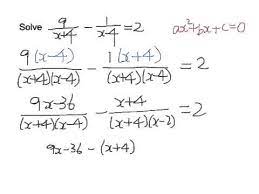 Solve 9/(x+4) - 1/(x-4) = 2 ax²+bx+c=0
9(x-4)/((x+4)(x-4)) - 1(x+4)/((x+4)(x-4)) = 2
9x-36/((x+4)(x-4)) - x+4/((x+4)(x-2)) = 2
9x-36-(x+4)